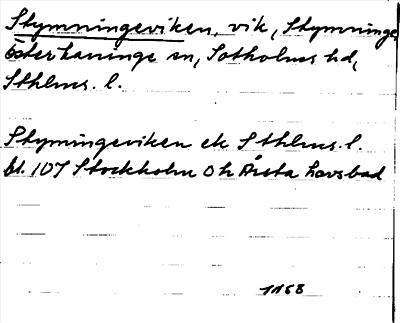 Stymningeviken, vik, Stymninge,
Österhaninge sn, Sotholms hd,
Sthlms. l.
Stymingeviken ek Sthlms. l.
bl. 107 Stockholm Årsta havsbad
1168